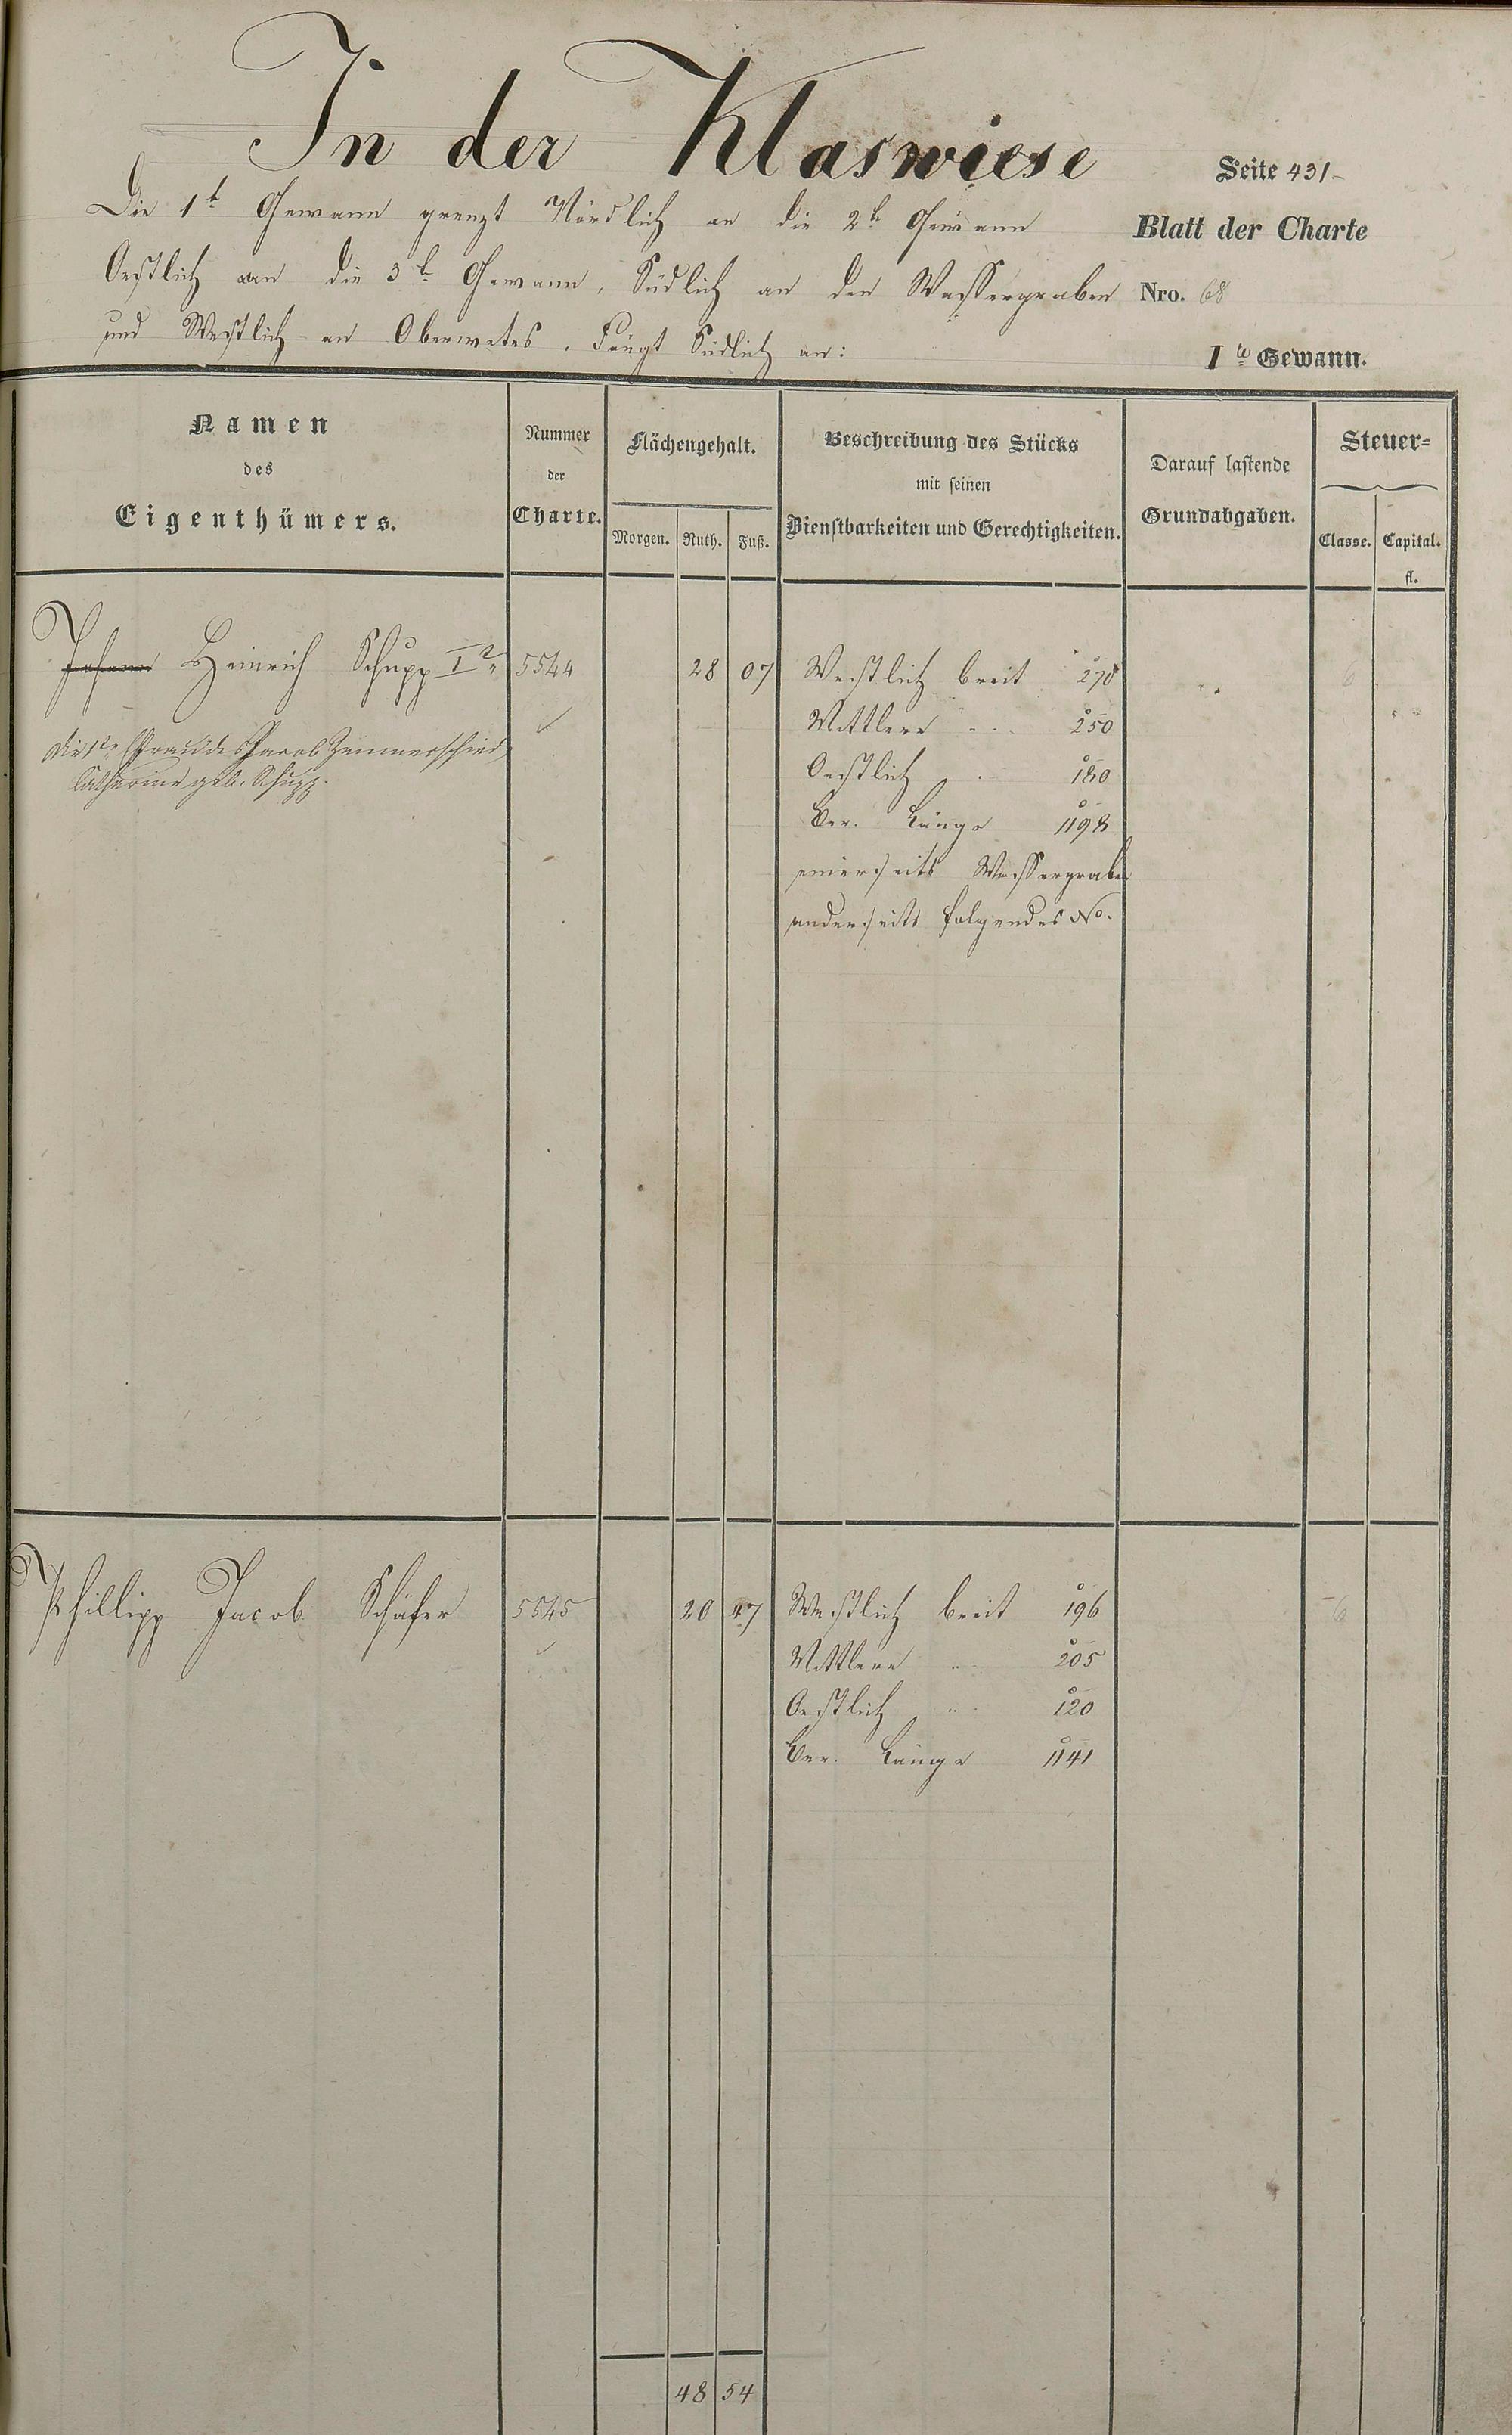 In der Klaswiese
Seite 431
Die 1te Gewann grenzt Nördlich an die 2te Gewann
Blatt der Charte
Oestlich an die 3te Gewann, Südlich an den Wassergraben
Nro. 68
und Westlich an Oberwetes. Fängt Südlich an:
Ite Gewann.
Namen
des
Eigenthümers.
Nummer
der
Charte.
Flächengehalt.
Morgen. Ruth. Fuß.
Beschreibung des Stücks
mit seinen
Dienstbarkeiten und Gerechtigkeiten.
Darauf lastende
Grundabgaben.
Steuer=
Classe. Capital.
fl.
Johann Heinrich Schupp Ir 5544 28 07 Westlich breit 270 6
Mittlere " 250
Die 1te Frau des Jacob Zimmerschied
Oestlich 180
Catharine geb. Schupp.
Ver. Länge 1198
einerseits Wassergraben
anderseits folgendes No.
Phillipp Jacob Schäfer 5545 20 47 Westlich breit 196 6
Mittlere " 205
Oestlich " 120
Ver. Länge 1141
48 54